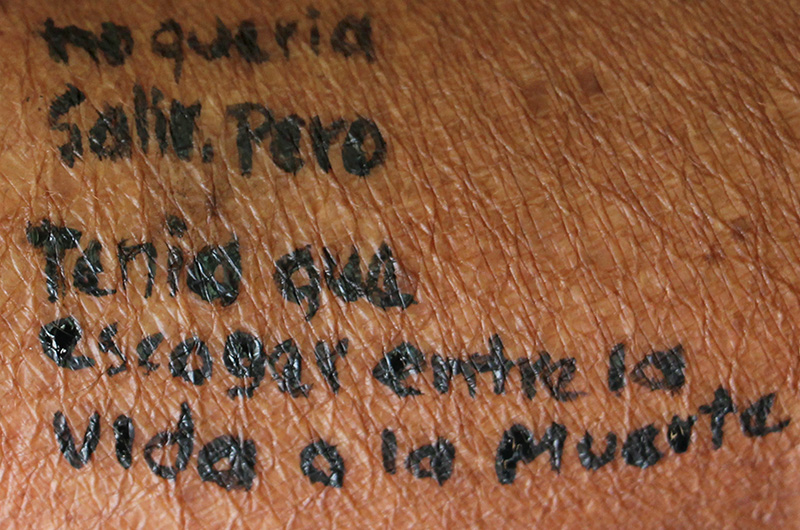 no queria
Salir. Pero
Tenia que
escogar entre la
vida o la Muerte